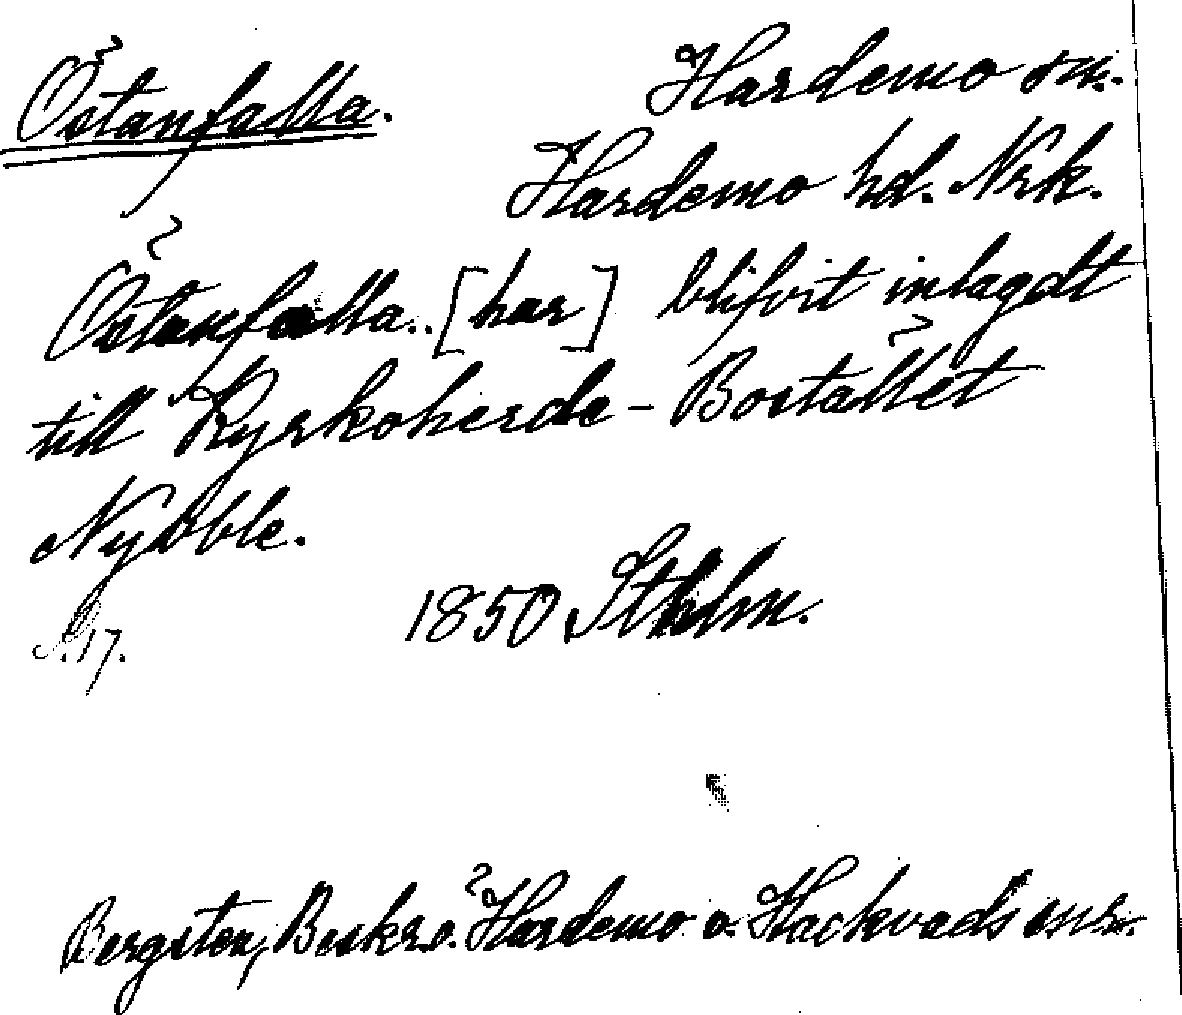 Östanfalla.
Hardemo sn.
Hardemo hd. Nrk.
Östanfalla.. [har] blifvit inlagdt
till Kyrkoherde-Bostället
Nybble.
S. 17.
1850 Sthlm.
Bergsten, Beskr. ö. Hardemo o. Hackvads snr.